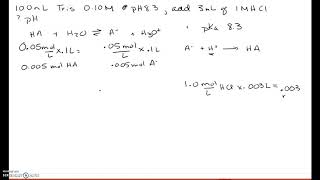 100mL Tris 0.10M @ pH 8.3, add 3mL of 1M HCl
? pH
HA + H₂O ⇌ A⁻ + H₃O⁺ pKa 8.3
0.05 mol/L x .1L .05 mol/L x .1L A⁻ + H⁺ → HA
0.005 mol HA .005 mol A⁻
1.0 mol/L HCl x .003L = .003